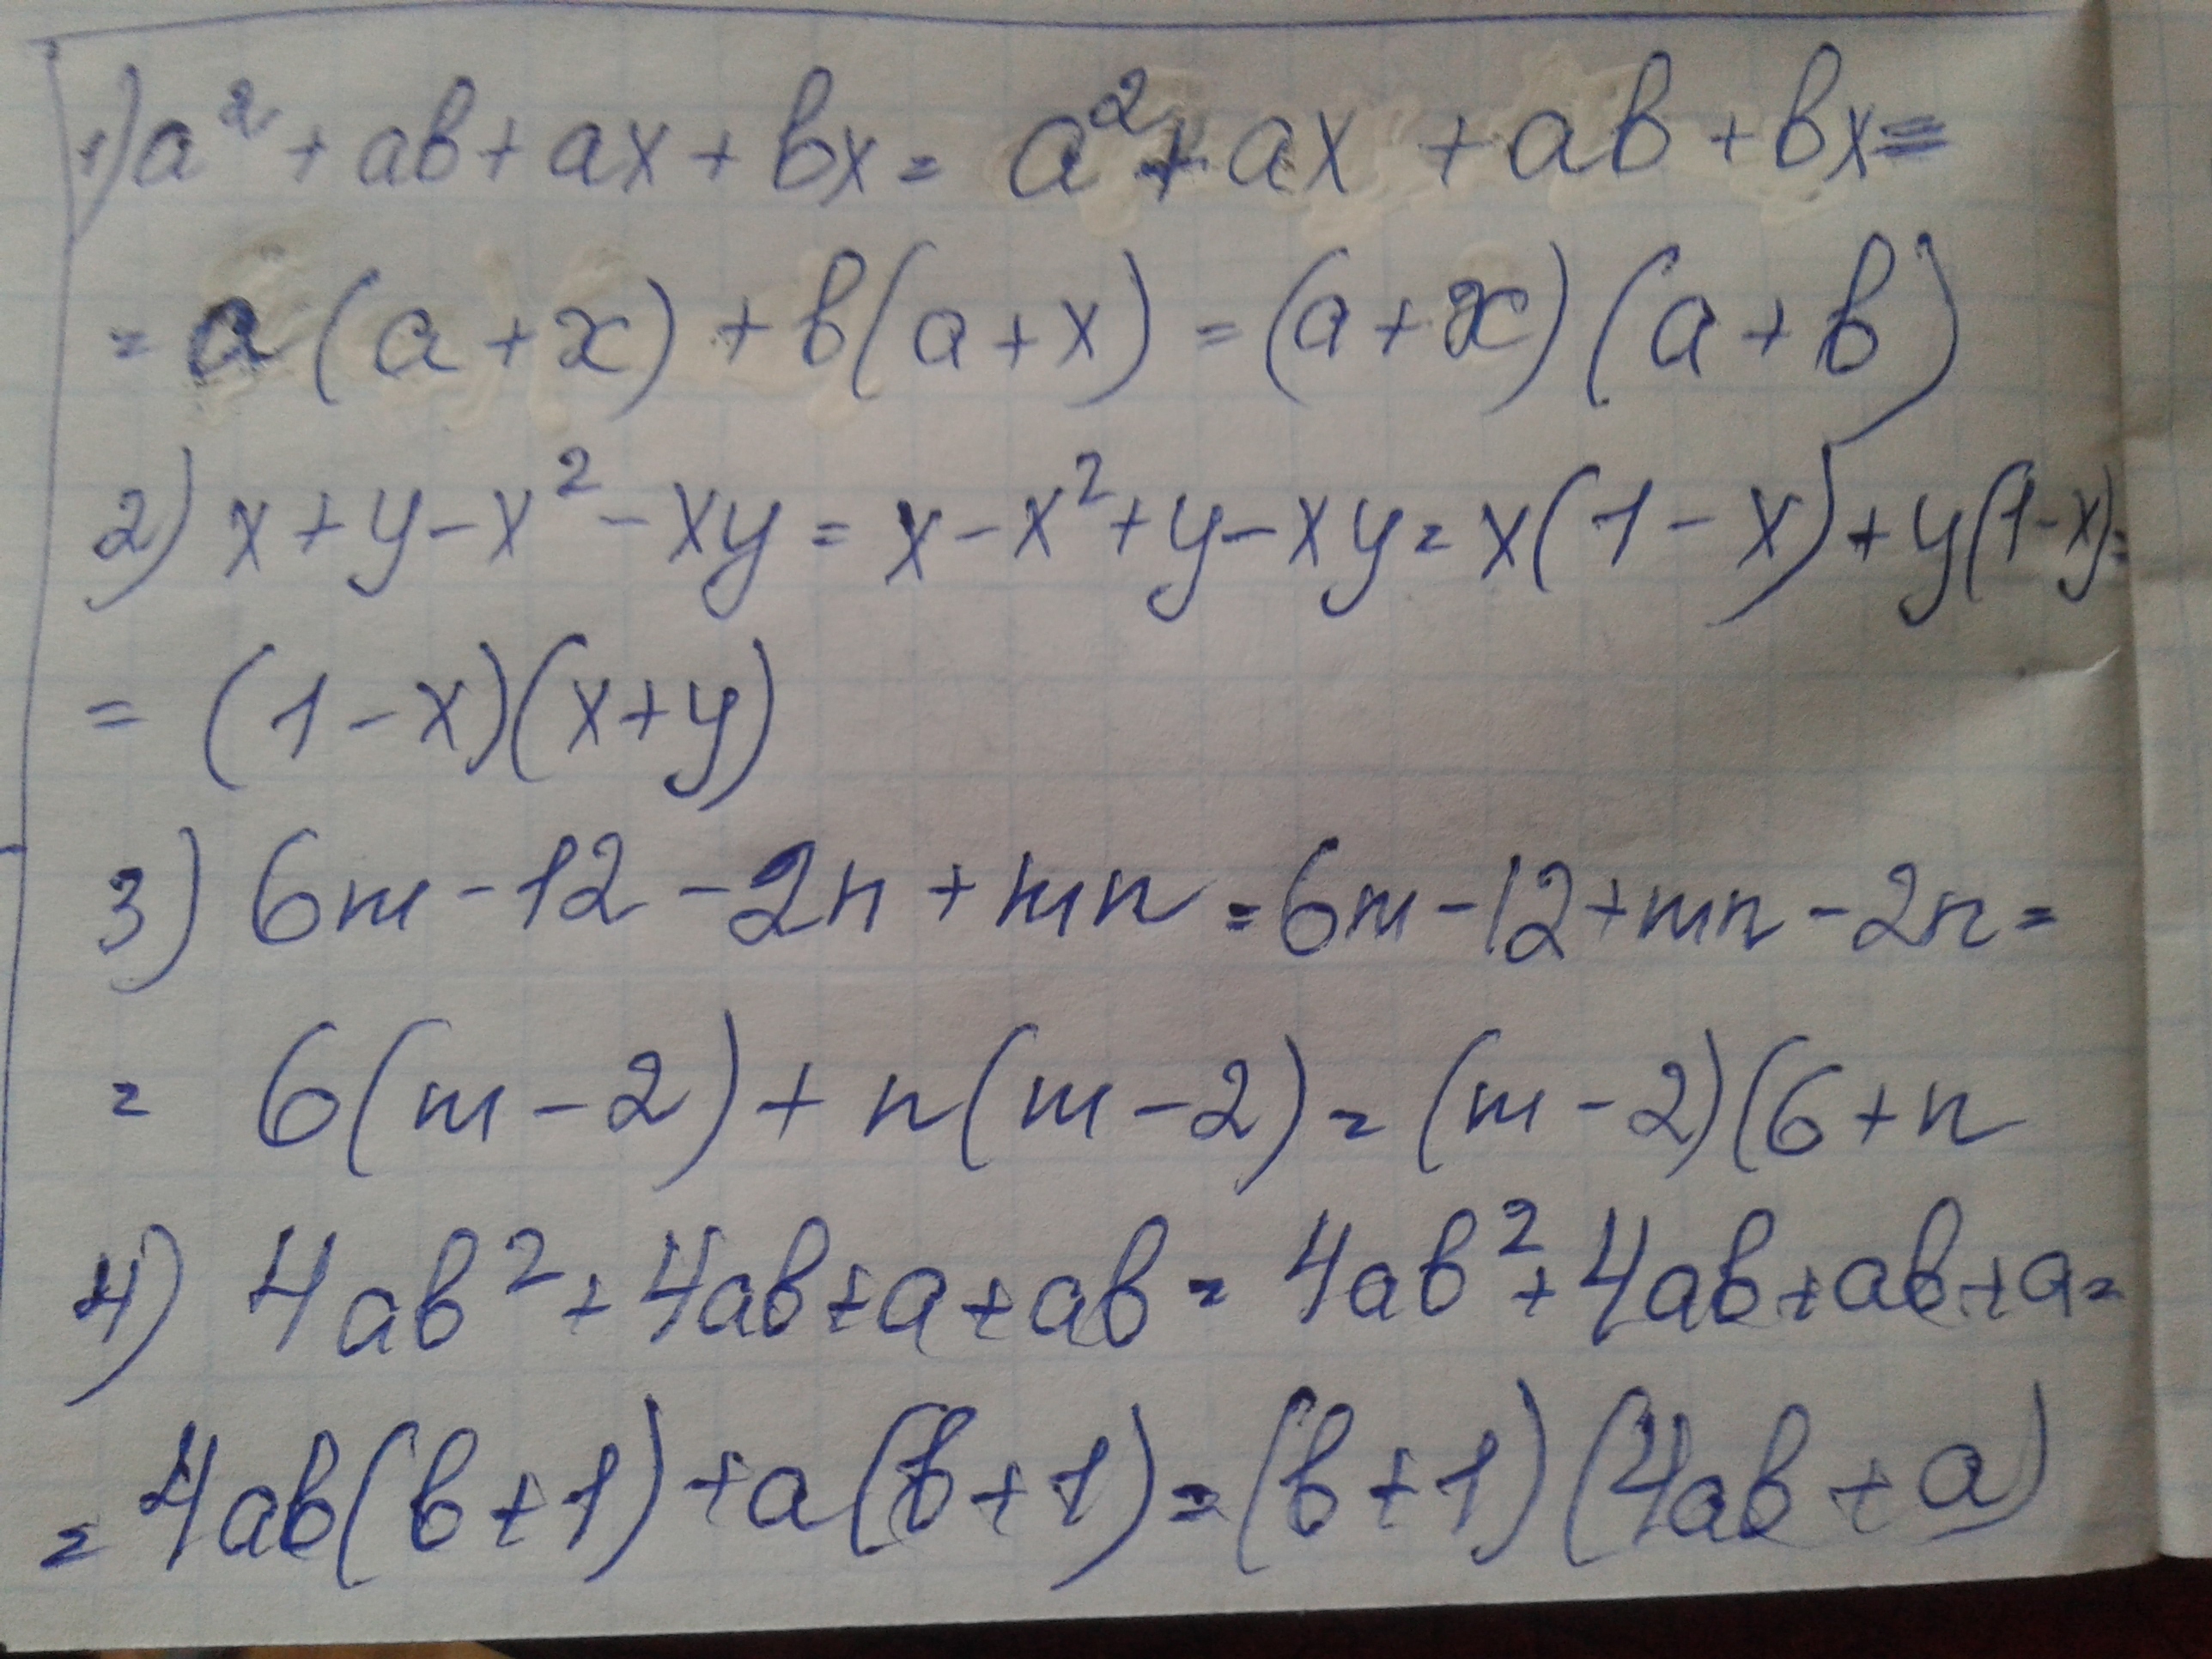 1) a² + ab + ax + bx = a² + ax + ab + bx =
= a (a + x) + b(a + x) = (a + x) (a + b)
2) x + y - x² - xy = x - x² + y - xy = x(1 - x) + y(1 - x) =
= (1 - x)(x + y)
3) 6m - 12 - 2n + mn = 6m - 12 + mn - 2n =
= 6(m - 2) + n(m - 2) = (m - 2)(6 + n
4) 4ab² + 4ab + a + ab = 4ab² + 4ab + ab + a =
= 4ab(b + 1) + a(b + 1) = (b + 1)(4ab + a)